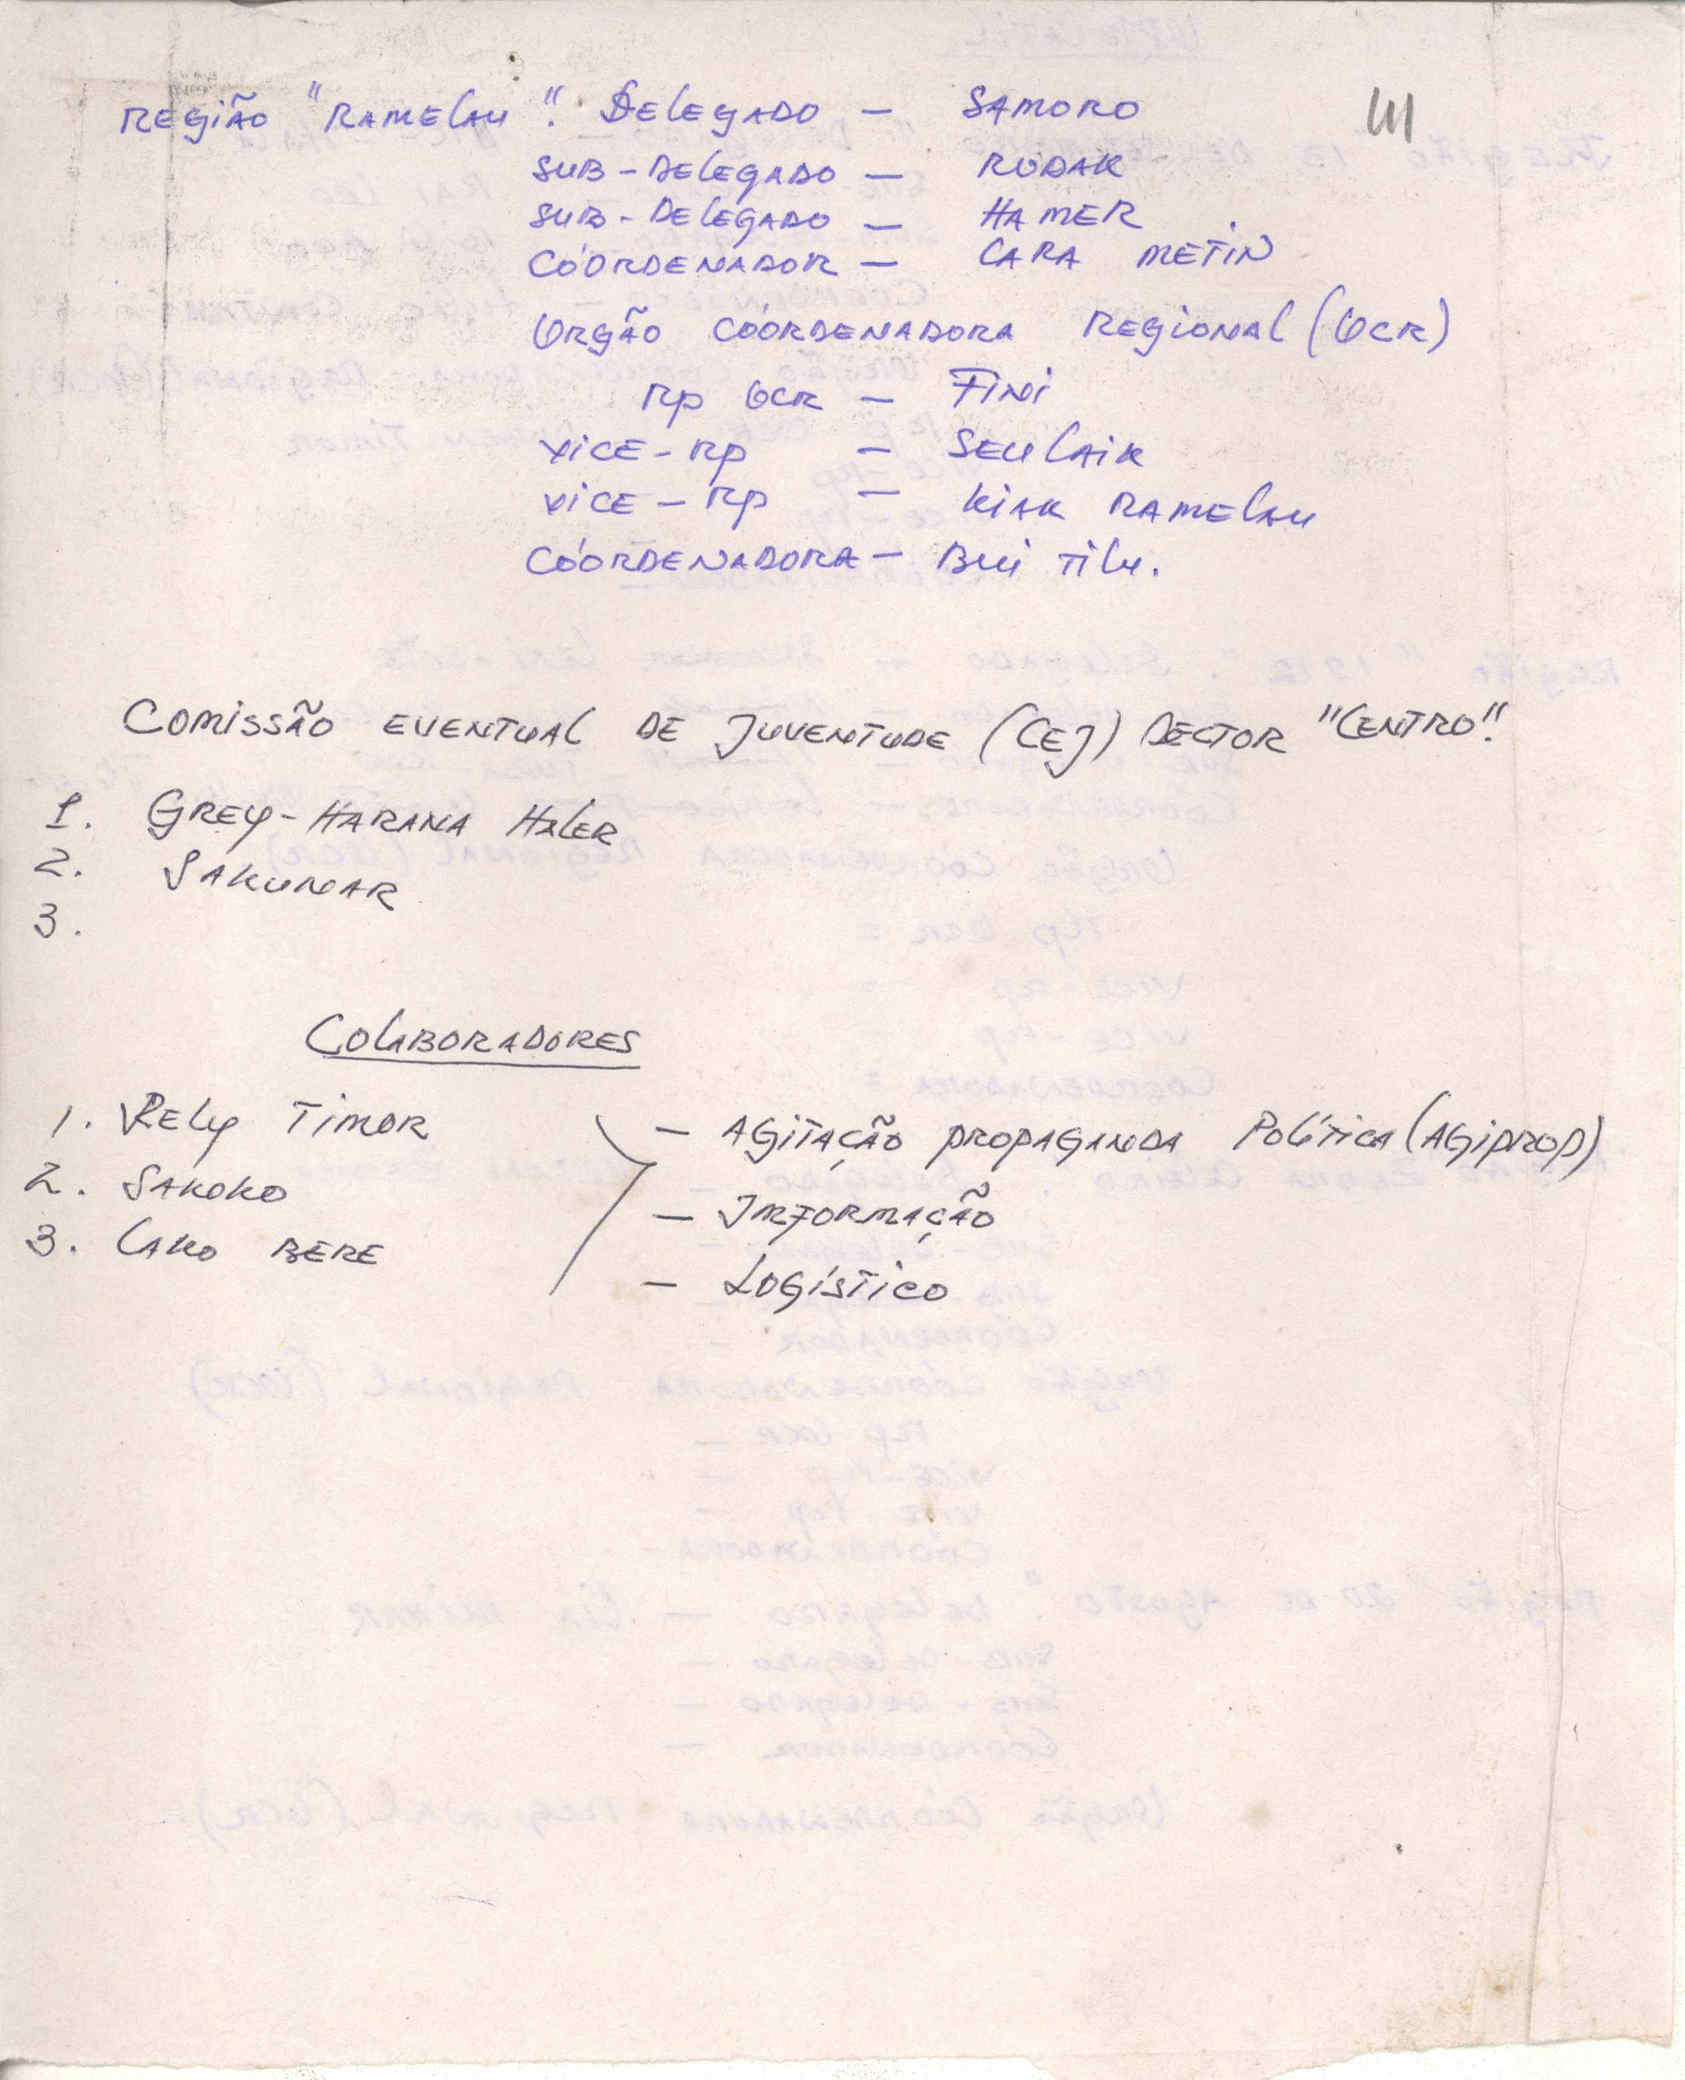 Região "Ramelau". Delegado — Samoro
Sub-Delegado — Rodak
Sub-Delegado — Hamer
Cóordenador — Cara Metin
Orgão Cóordenadora Regional (OCR)
Rp OCR — Fini
Vice-Rp — Seulaik
Vice-Rp — Kiak Ramelau
Cóordenadora — Bui Tilu.
Comissão Eventual de Juventude (CEJ) Sector "Centro".
1. Grey-Harana Haler
2. Sakunar
3.
Colaboradores
1. Rely Timor — Agitação Propaganda Política (Agiprop)
2. Sakoko — Informação
3. Lako Bere — Logístico